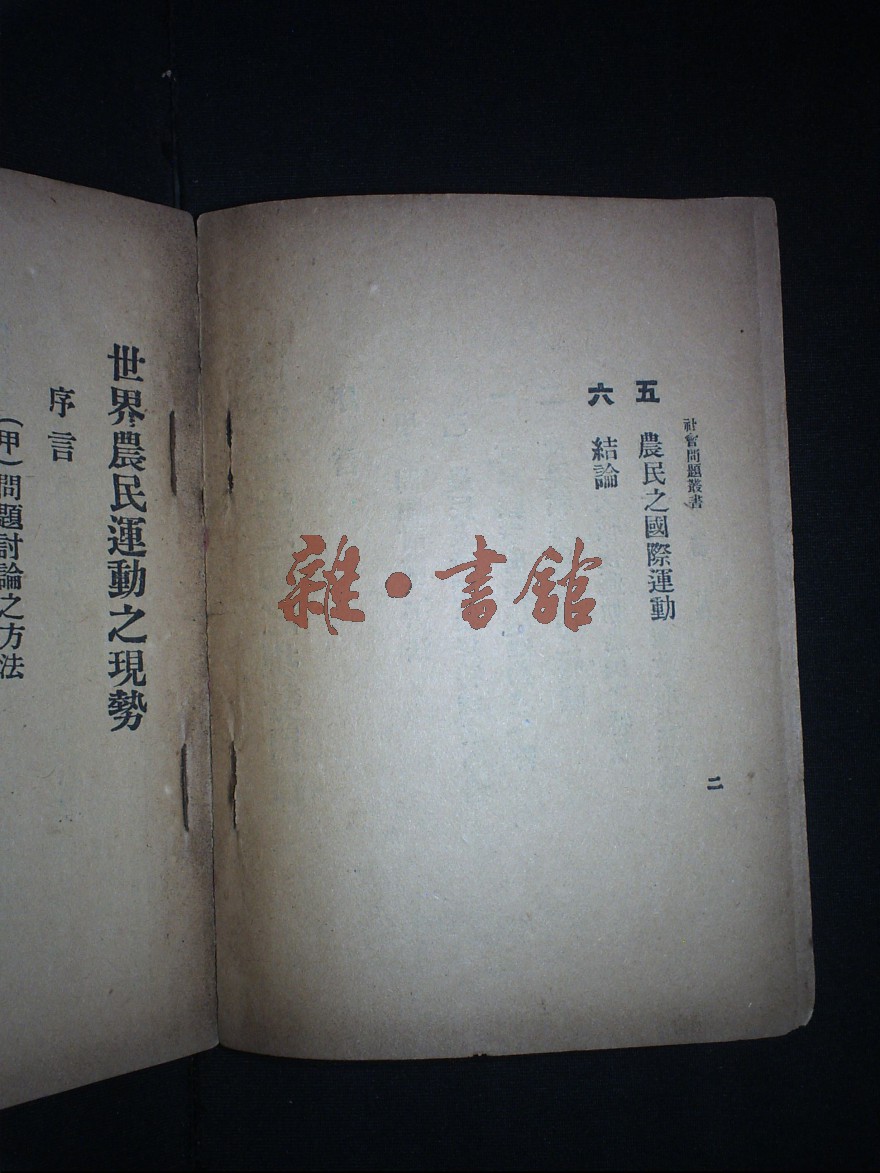 社會問題叢書
二
五 農民之國際運動
六 結論
雜·書館
世界農民運動之現勢
序言
(甲)問題討論之方法